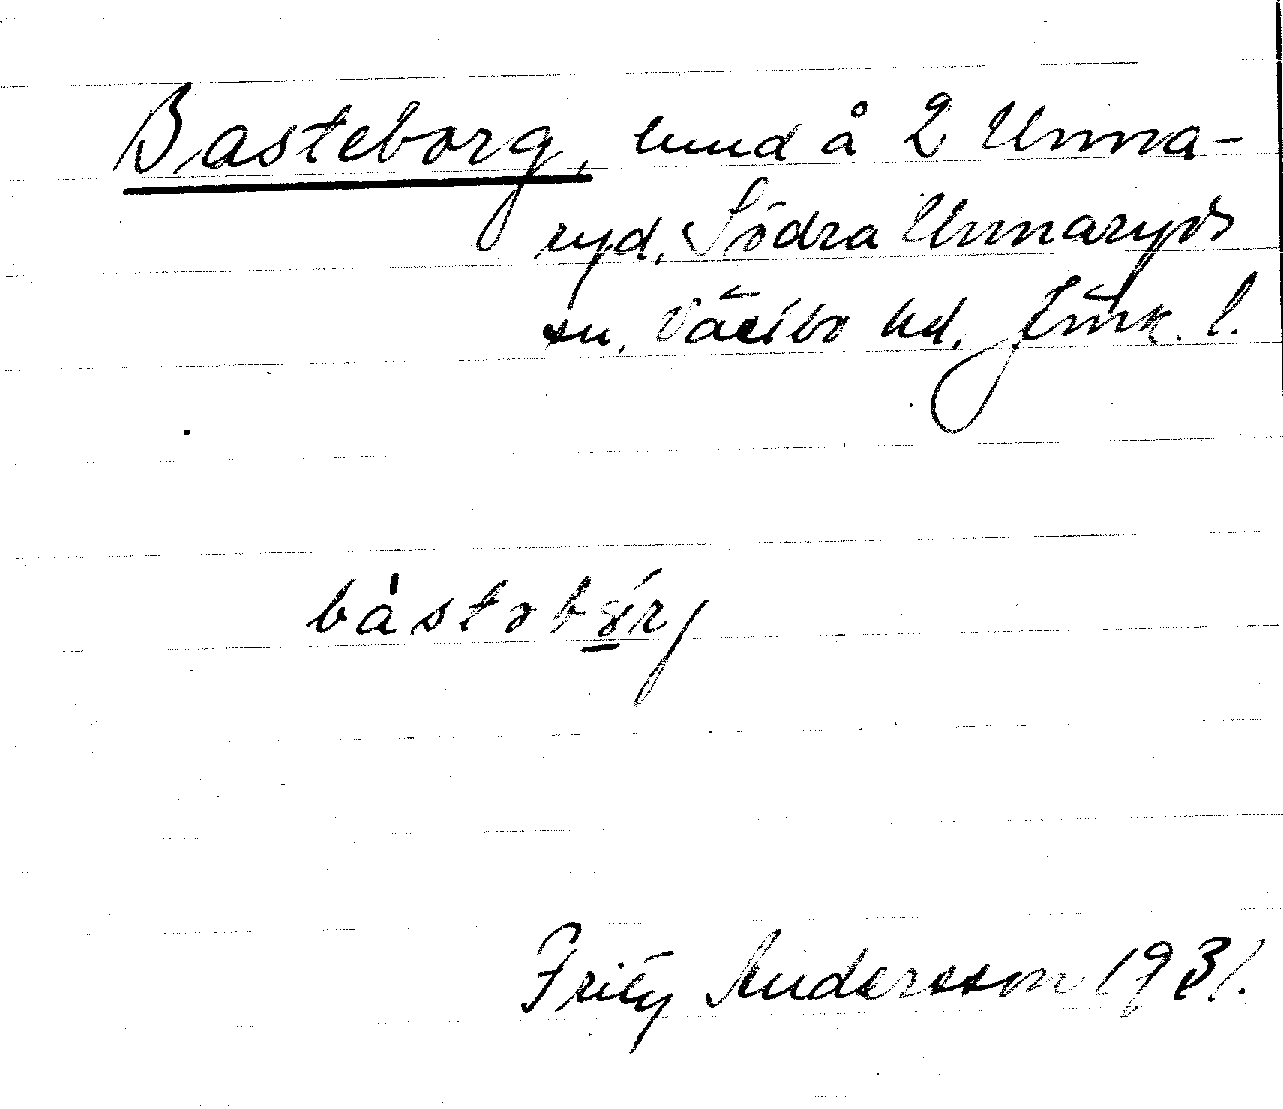 Basteborg, lund å 2 Unna-
ryd, Södra Unnaryds
sn, Västbo hd, Jönk. l.
bàstəbo̱rj
Fritz Andersson 1931.